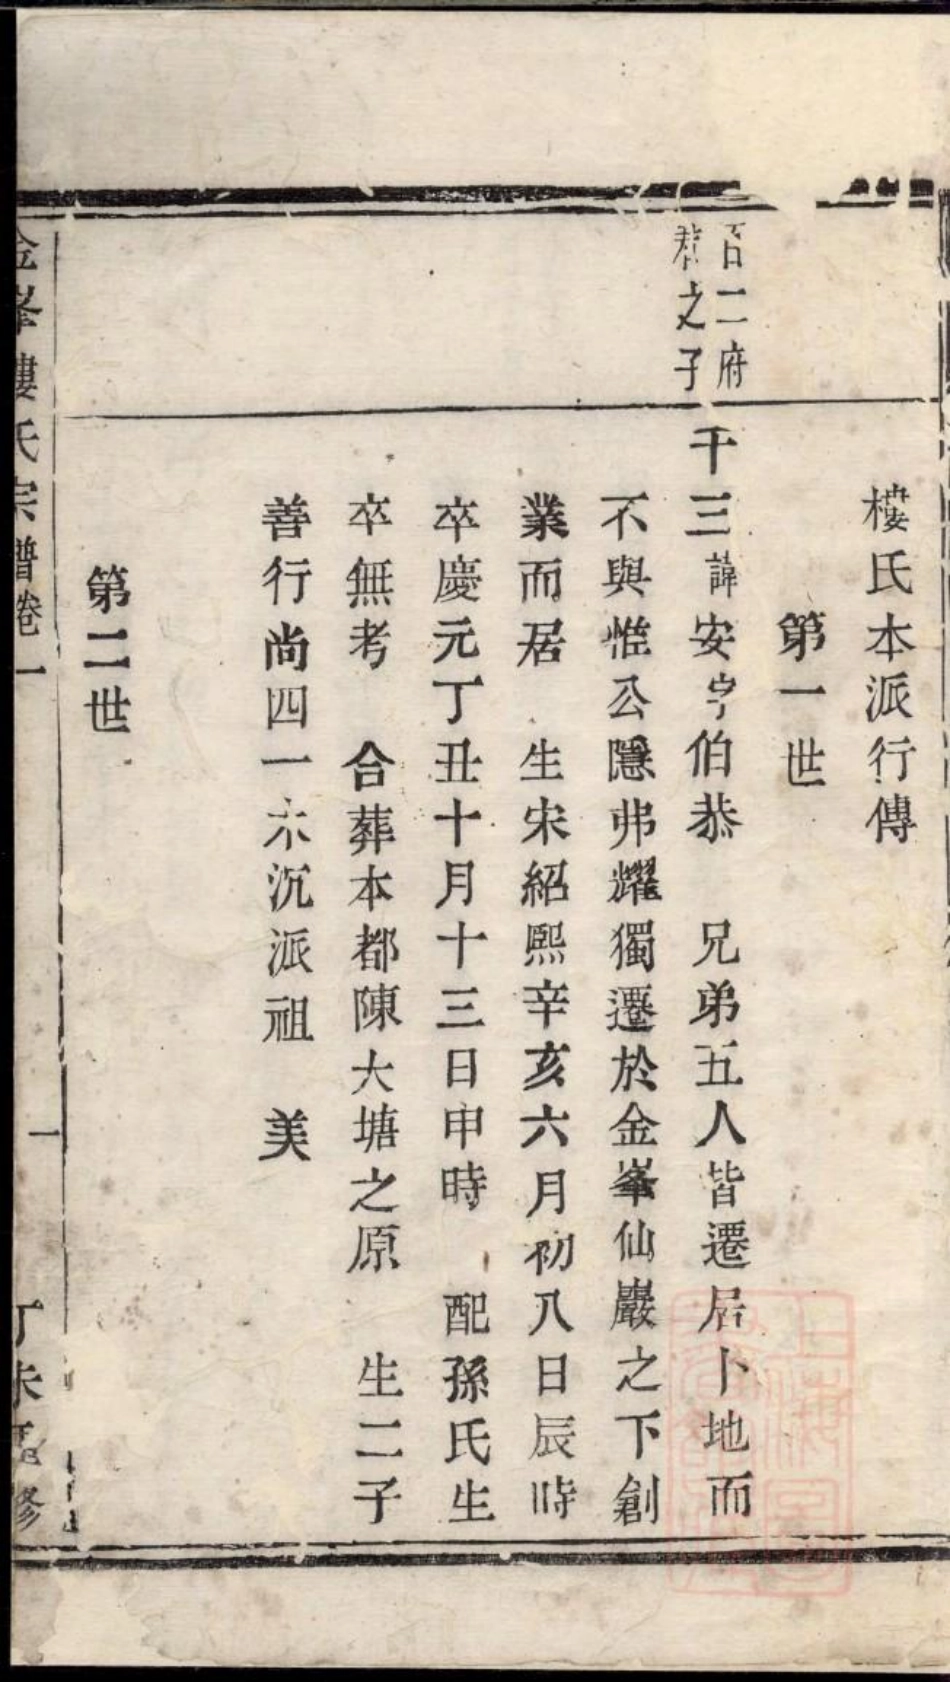 樓氏本派行傳
第一世
百二府
君之子
千三諱安字伯恭　兄弟五人皆遷居卜地而
不與惟公隱弗耀獨遷於金峯仙巖之下創
業而居　生宋紹熙辛亥六月初八日辰時
卒慶元丁丑十月十三日申時　配孫氏生
卒無考　合葬本都陳大塘之原　生二子
善行尚四一木沉派祖　美
第二世
金峯樓氏宗譜卷一
一
丁未重修